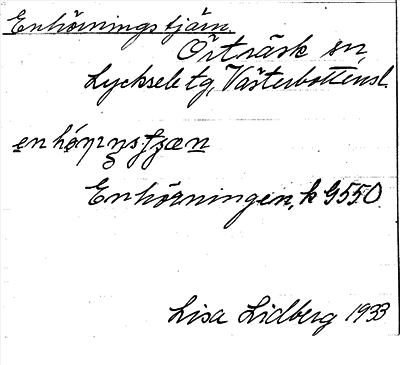 Enhörningstjärn.
Örträsk sn,
Lycksele tg, Västerbottensl.
Enhörningen, k G550.
Lisa Lidberg 1933